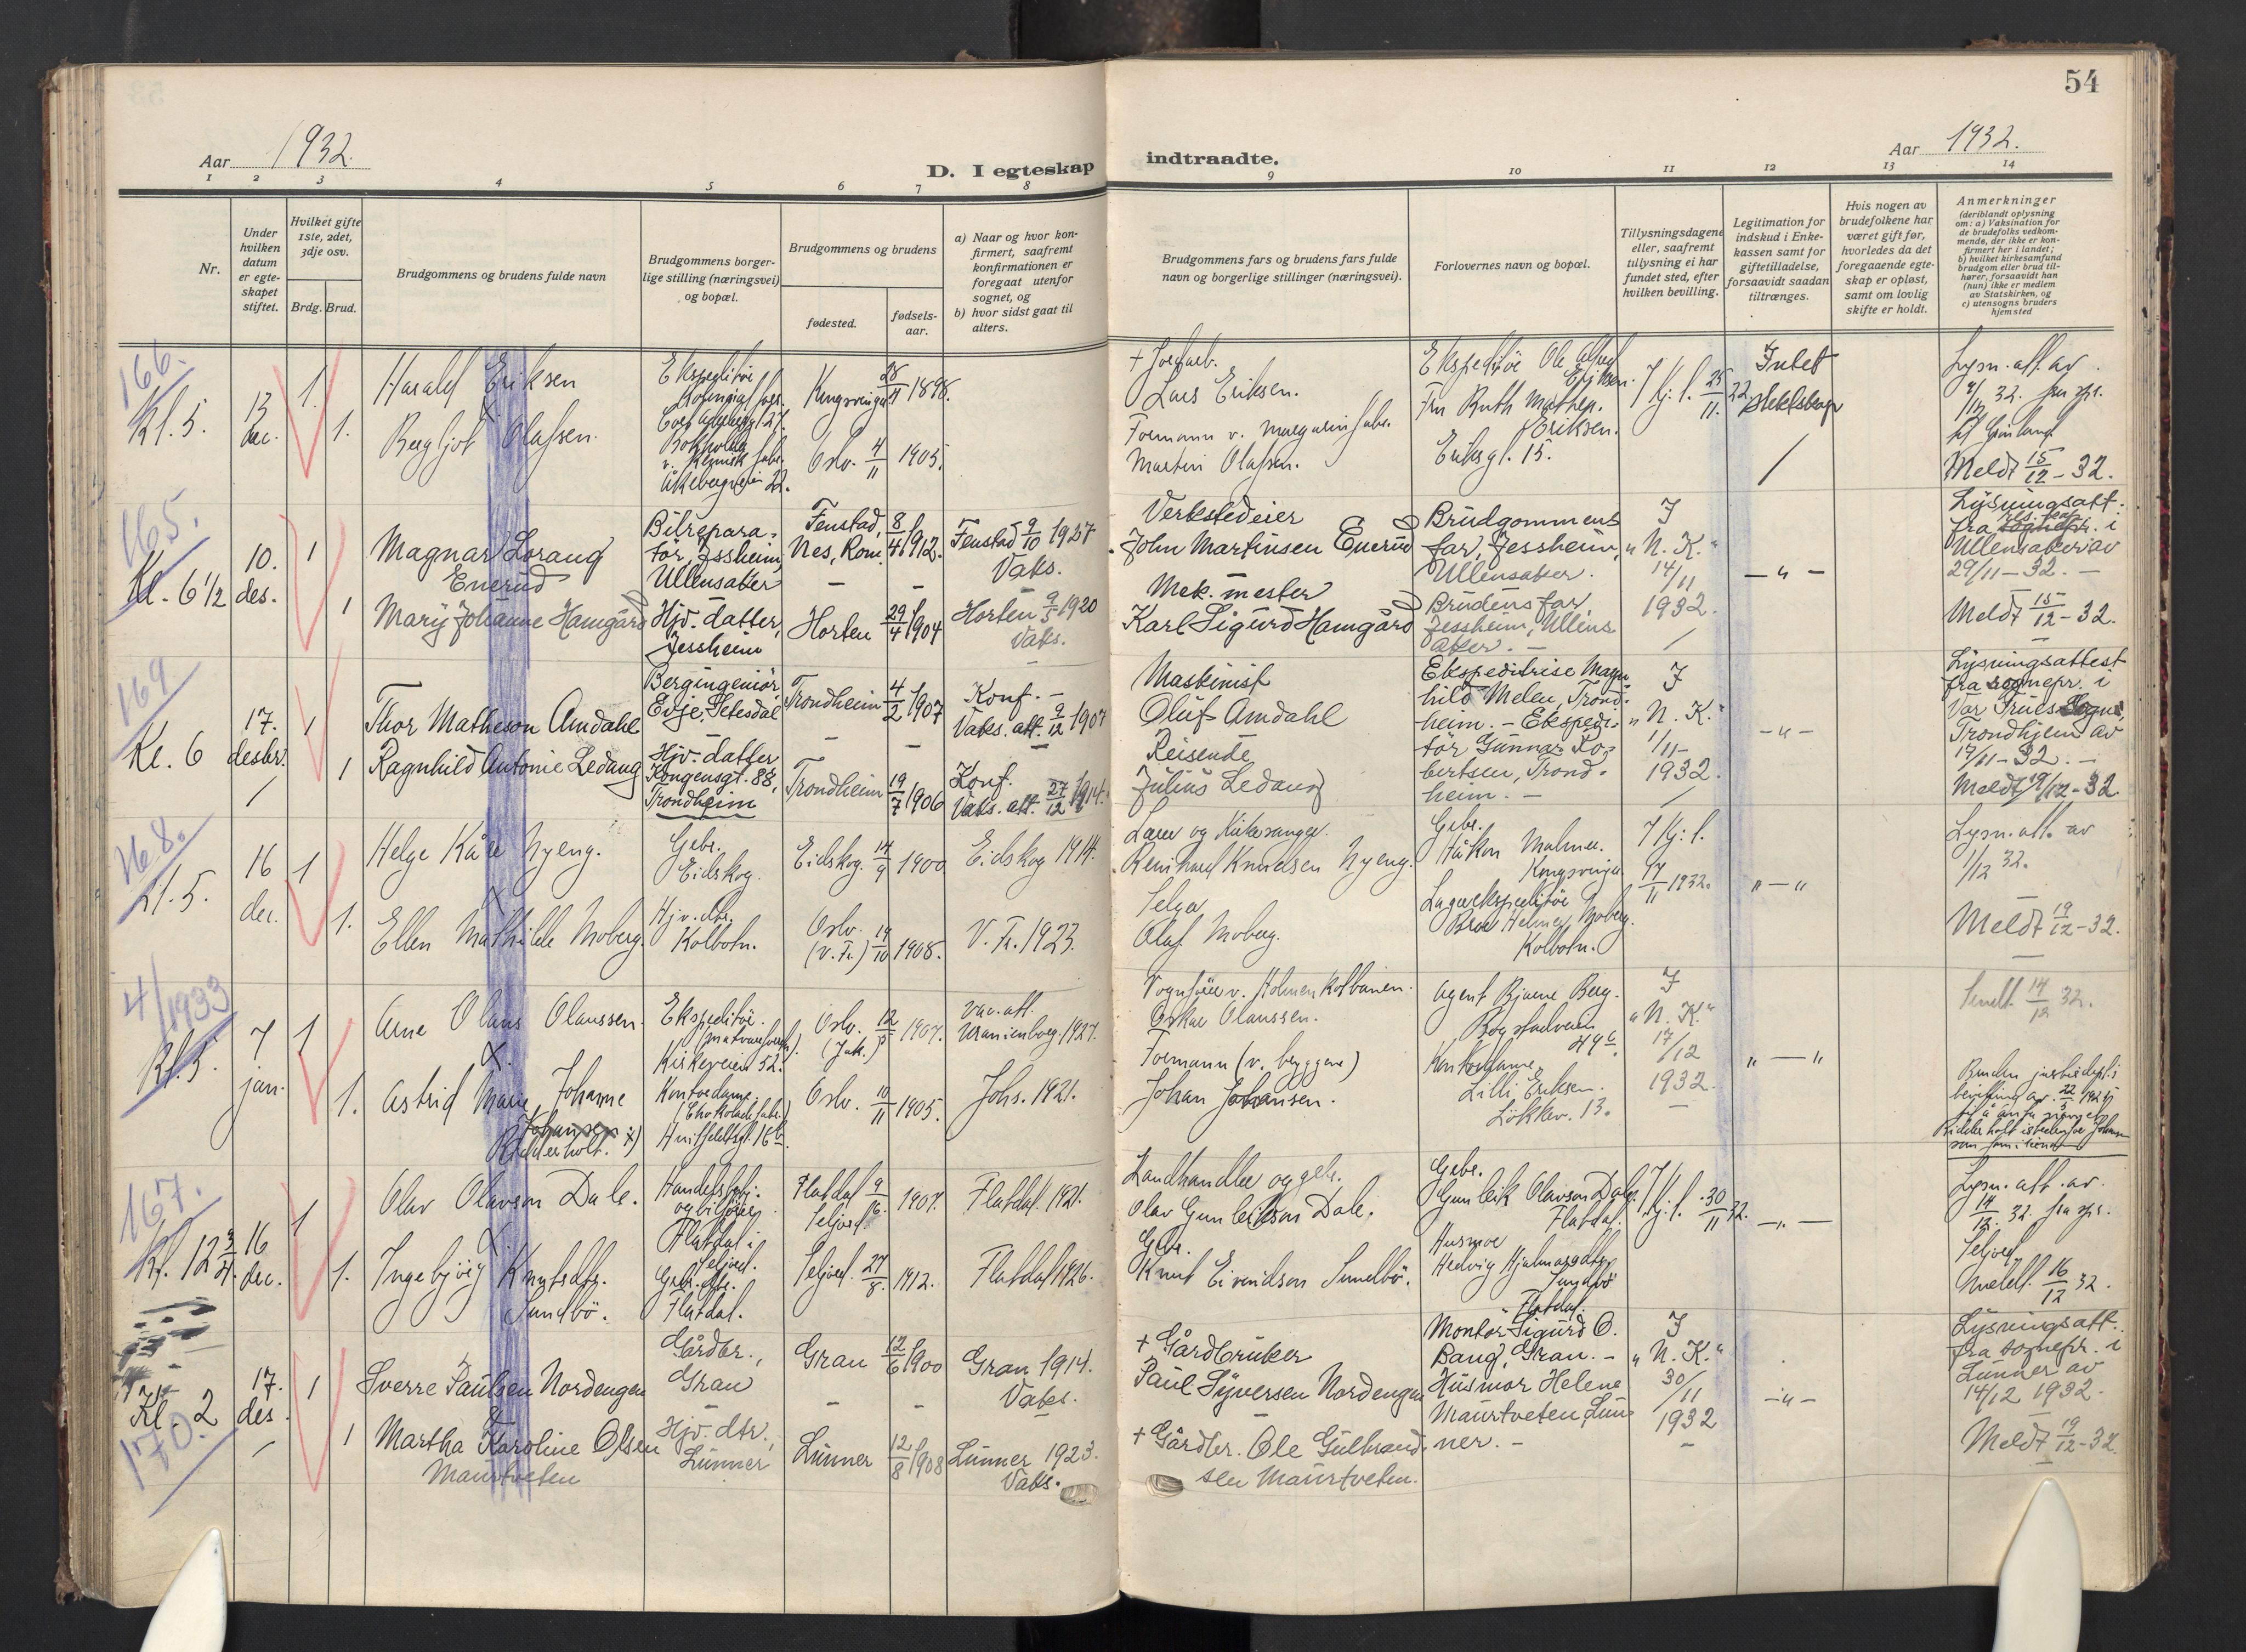 54
Aar 1932.
D. I egteskap
indtraadte.
Aar 1932.
1 2 3 4 5 6 7 8 9 10 11 12 13 14
Nr.
Under hvilken datum er egte-skapet stiftet.
Hvilket gifte 1ste, 2det, 3dje osv.
Brdg. Brud.
Brudgommens og brudens fulde navn
Brudgommens borger-
lige stilling (næringsvei)
og bopæl.
Brudgommens og brudens
fødested.
fødsels-
aar.
a) Naar og hvor kon-
firmert, saafremt
konfirmationen er
foregaat utenfor
sognet, og
b) hvor sidst gaat til
alters.
Brudgommens fars og brudens fars fulde
navn og borgerlige stillinger (næringsvei).
Forlovernes navn og bopæl.
Tillysningsdagene
eller, saafremt
tillysning ei har
fundet sted, efter
hvilken bevilling.
Legitimation for
indskud i Enke-
kassen samt for
giftetilladelse,
forsaavidt saadan
tiltrænges.
Hvis nogen av
brudefolkene har
været gift før,
hvorledes da det
foregaaende egte-
skap er opløst,
samt om lovlig
skifte er holdt.
Anmerkninger
(deriblandt oplysning
om: a) Vaksination for
de brudefolks vedkom-
mende, der ikke er kon-
firmert her i landet;
b) hvilket kirkesamfund
brudgom eller brud til-
hører, forsaavidt han
(hun) ikke er medlem
av Statskirken, og
c) utensogns bruders
hjemsted
166.
Kl. 5.
13 dec.
1.
1.
Harald Eriksen
Bergljot Olafsen.
Ekspeditør
Kongsvinger 28/11 1898.
Oslo. 4/11 1905.
Lars Eriksen.
Formann v. margarinfabr.
Martin Olafsen.
Fru Ruth
Eriksen.
Eriksgt. 15.
25/11.
Intet
slektskap
Lysn. att. av
Meldt 15/12 - 32.
165.
Kl. 6 1/2
10. des.
1
1
Magnar Lorang
Enerud
Mary Johanne Hamgård
Bilrepara-
tør, Jessheim,
Ullensaker
Hjv. datter,
Jessheim
Fenstad,
Nes, Rom. 8/4 1912.
Horten 29/4 1904
Fenstad 9/10 1927
Vaks.
Horten 9/5 1920
Vaks.
Verkstedeier
John Martinsen Enerud
Mek. mester
Karl Sigurd Hamgård
Brudgommens
far, Jessheim,
Ullensaker.
Brudens far,
Jessheim, Ullens-
aker. -
I
"N. K."
14/11
1932.
- " -
Lysningsatt.
fra sognepr. i
Ullensaker av
29/11 - 32. -
Meldt 15/12 - 32.
169
Kl. 6
17. desbr.
1
1
Thor Matheson Amdahl
Ragnhild Antonie Ledang
Bergingeniør,
Evje, Setesdal
Hjv. datter
Kongensgt. 88,
Trondheim
Trondheim 4/2 1907
Trondheim 19/7 1906
Konf. -
Vaks. att. 9/12 1907
Konf.
Vaks. att. 27/12 1914.
Maskinist
Oluf Amdahl
Reisende
Julius Ledang
Ekspeditrise Magn-
hild Melen, Trond-
heim. - Ekspedi-
tør Gunnar Ro-
bertsen, Trond-
heim. -
I
"N. K."
1/11
1932.
- " -
Lysningsattest
fra sognepr. i
Vår Frues Sogn,
Trondhjem av
17/11 - 32. -
Meldt 19/12 - 32.
168.
Kl. 5.
16 dec.
1
1.
Helge Kåre Nyeng.
Ellen Mathilde Moberg
Gbr.
Eidskog.
Hjv. dtr.
Kolbotn.
Eidskog. 14/9 1900
Oslo.
(V. Fr.) 19/10 1908.
Eidskog 1914.
V. Fr. 1923.
Lærer og Kirkesanger.
Reinhard Knudsen Nyeng.
Selger
Olaf Moberg.
Gbr.
Håkon Malmer
Kongsvinger
Lagerekspeditør
Helmer Moberg.
Kolbotn.
11 1932.
" - "
Lysn. att. av
1/12 32.
Meldt 19/12 - 32.
4/1933
Kl. 5.
7 jan.
1
1.
Arne Olaus Olaussen.
Astrid Marie Johanne
Johansen x)
Ridderholt.
Ekspeditør.
Kirkeveien 52.
Kontordame.
(Chokoladefabr.)
Huitfeldtsgt. 16b
Oslo. (Jak.) 1907.
Oslo. 10/11 1905.
Vac. att.
Uranienborg. 1927.
Johs. 1921.
Vognfører v. Holmenkolbanen.
Oskar Olaussen.
Formann (v. bryggeri)
Johan Johansen.
Agent Bjarne Berg.
Bogstadveien
49 c.
Kontordame
Lilli Eriksen.
Løkkev. 13.
I
"N. K."
17/12
1932.
" - "
32.
Bruden justisdept's
bevilling av
167.
Kl. 12 3/4.
16 dec.
1
1.
Olav Olavson Dale.
Ingebjørg Knutsdtr.
Sundbø.
Flatdal i
Seljord.
Gbr. dtr.
Flatdal.
Flatdal
Seljord. 9/6. 1907.
Seljord. 27/8. 1912.
Flatdal. 1921.
Flatdal 1926.
Landhandler og gbr.
Olav Gunleikson Dale.
Gbr.
Knut Eivindson Sundbø.
Gbr.
Gunleik Olavson Dale.
Flatdal.
Husmor
Hedvig Hjalmarsdtr
Sundbø
Flatdal.
30/11 32.
- " -
Lysn. att. av.
14/12. 32. fra spr.
Seljord
Meldt 16/12 32.
170.
Kl. 2
17. des.
1
1
Sverre Paulsen Nordengen
&
Martha Karoline Olsen
Maurtveten
Gårdbr.,
Gran
Hjv. dtr.,
Lunner
Gran 12/6 1900
Lunner 12/8 1908
Gran 1914.
Vaks.
Lunner 1923.
Vaks.
+ Gårdbruker
Paul Syversen Nordengen
+ Gårdbr. Ole Gulbrand-
sen Maurtveten.
Montør Sigurd O.
Bang, Gran. -
Husmor Helene
Maurtveten, Lun-
ner. -
I
"N. K."
30/11
1932
- " -
Lysningsatt.
fra sognepr. i
Lunner av
14/12 1932.
Meldt 19/12 - 32